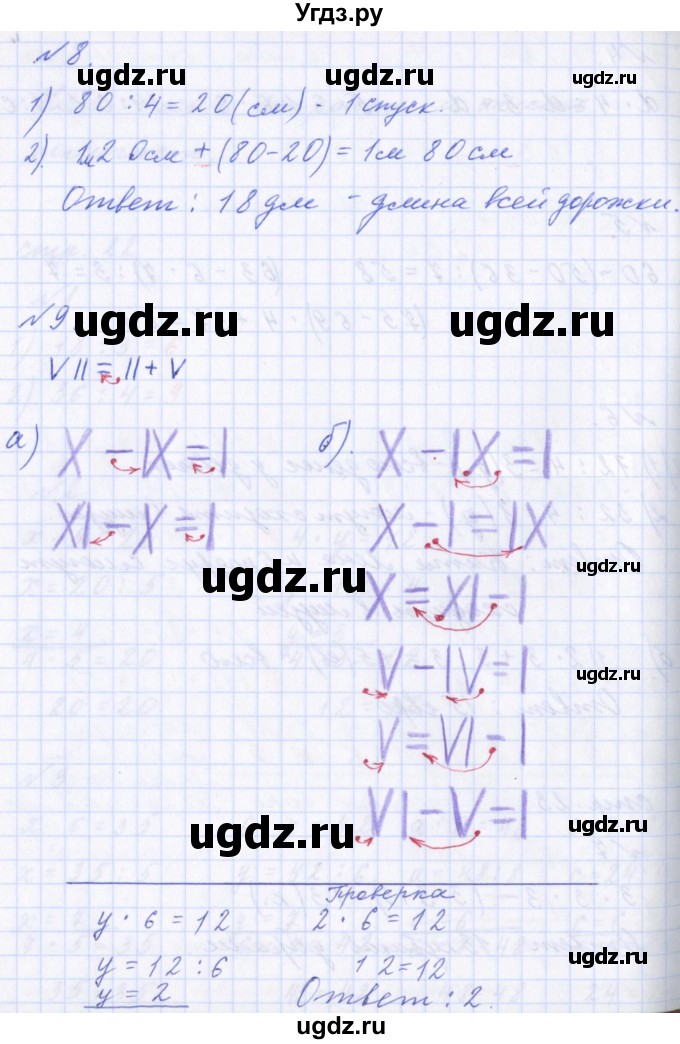 Угдз.ру
№8.
1) 80 : 4 = 20 (см) - 1 спуск.
2) 1м 20см + (80-20) = 1м 80см
Ответ: 18дм - длина всей дорожки.
№9
VII = II + V
а) X - IX = I
XI - X = I
б). X - IX = I
X - I = IX
X = XI - I
V - IV = I
V = VI - I
VI - V = I
Проверка
y · 6 = 12 2 · 6 = 12
y = 12 : 6 12 = 12
y = 2 Ответ: 2.
ugdz.ru
ugdz.ru
ugdz.ru
ugdz.ru
ugdz.ru
ugdz.ru
ugdz.ru
ugdz.ru
ugdz.ru
ugdz.ru
ugdz.ru
ugdz.ru
ugdz.ru